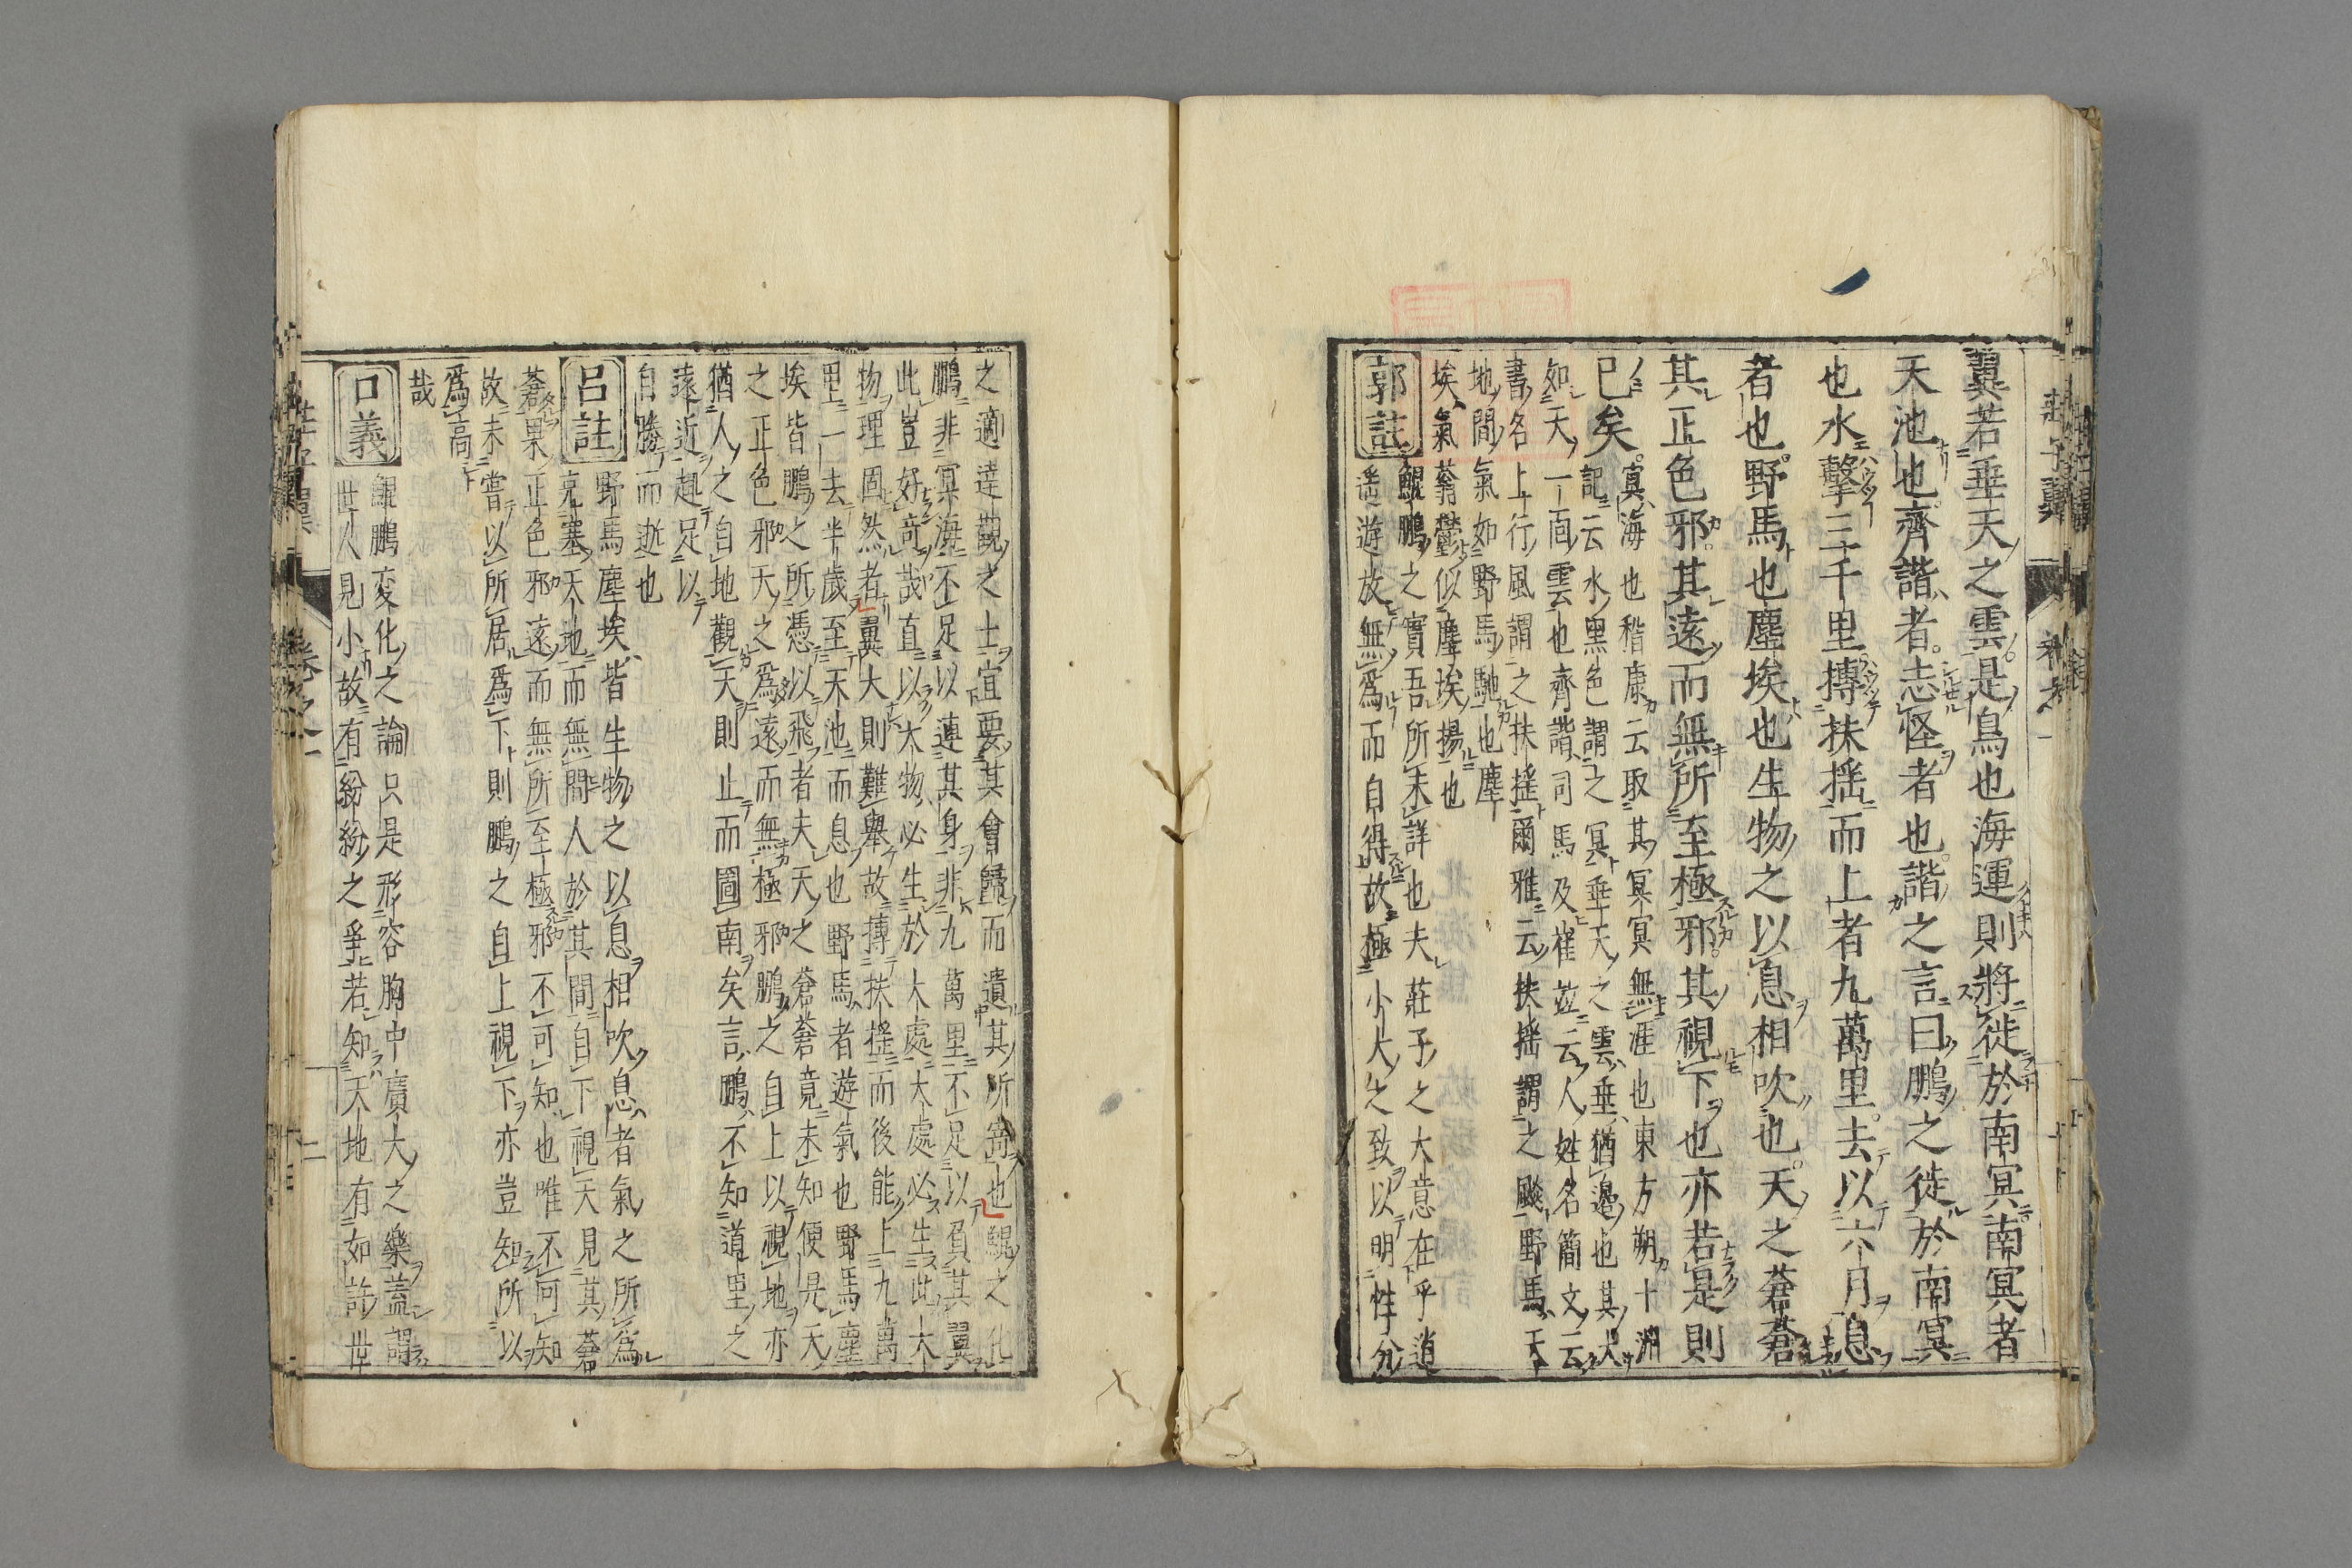 翼若垂天之雲是鳥也海運則將徙於南冥南冥者
天池也齊諧者志怪者也諧之言曰鵬之徙於南冥
也水擊三千里摶扶揺而上者九萬里去以六月息
者也野馬也塵埃也生物之以息相吹也天之蒼蒼
其正色邪其遠而無所至極邪其視下也亦若是則
已矣
冥海也嵆康云取其冥冥無涯也東方朔十洲
記云水黒色謂之冥垂天之雲垂猶邊也其大
如天一面雲也齊諧司馬及崔竝云人姓名簡文云
書名上行風謂之扶揺爾雅云扶揺謂之飇野馬天
地間氣如野馬馳也塵
埃氣蓊欝似塵埃揚也
郭註
鯤鵬之實吾所未詳也夫莊子之大意在乎逍
遙遊放無為而自得故極小大之致以明性分
之適達觀之士宜要其會歸而遺其所寄也鯤之化
鵬非冥海不足以運其身非九萬里不足以負其翼
此豈好竒哉直以大物必生於大處大處必生此大
物理固然者翼大則難舉故摶扶揺而後能上九萬
里一去半歲至天池而息也野馬者遊氣也野馬塵
埃皆鵬之所憑以飛者夫天之蒼蒼竟未知便是天
之正色邪天之為遠而無極邪鵬之自上以視地亦
猶人之自地觀天則止而圖南矣言鵬不知道里之
遠近趄足以
自勝而逝也
呂註
野馬塵埃皆生物之以息相吹息者氣之所為
充塞天地而無間人於其間自下視天見其蒼
蒼果正色邪遠而無所至極邪不可知也唯不可知
故未嘗以所居為下則鵬之自上視下亦豈知所以
為高
哉
口義
鯤鵬変化之論只是形容胸中廣大之樂蓋謂
世人見小故有紛紛之爭若知天地有如許世
莊子翼
卷之一
二